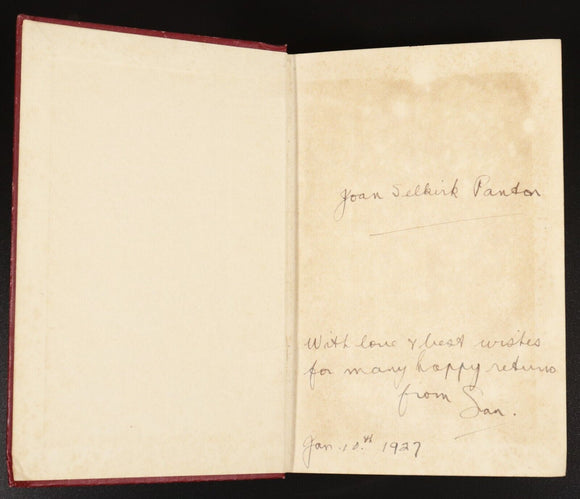 Joan Selkirk Panton
With love & best wishes
for many happy returns
from
Jan. 10th 1927